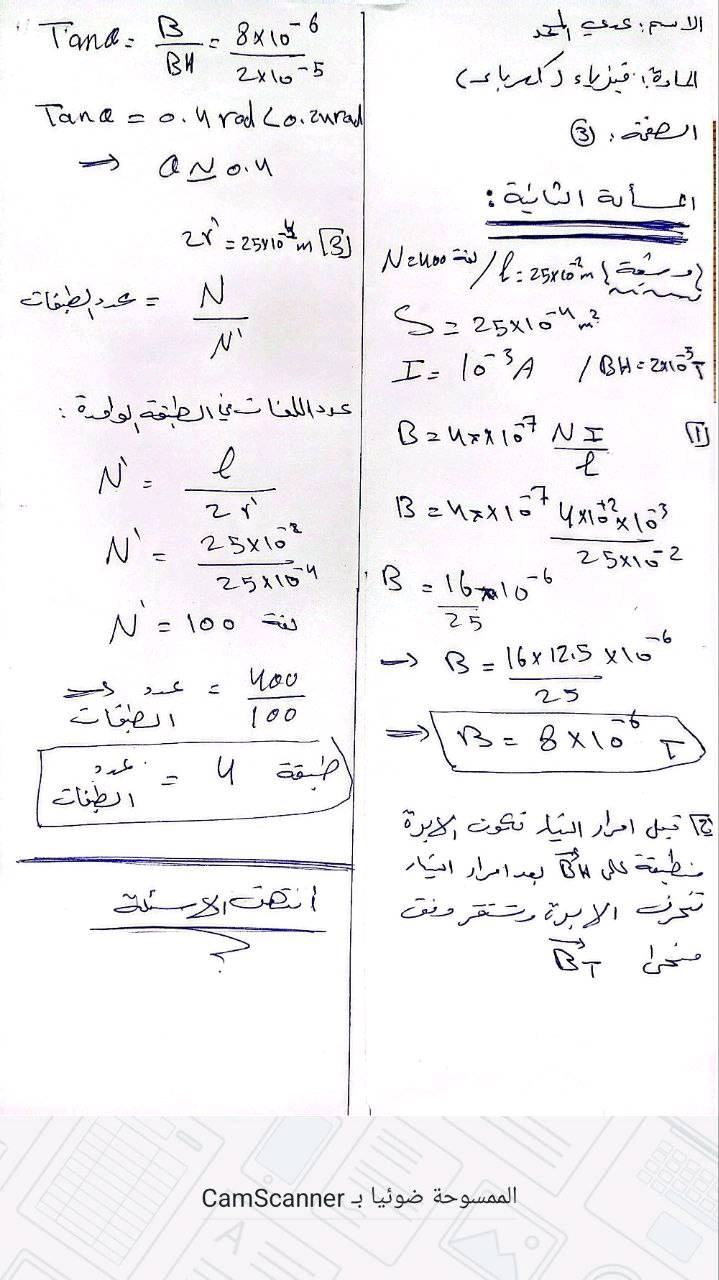 الاسم: عدي المحمد
المادة: فيزياء (كهرباء)
الصفحة: (3)
المسألة الثانية:
N=400 لفة / l=25×10⁻²m {وشيعة}
S = 25×10⁻⁴ m²
I = 10⁻³ A / BH = 2×10⁻⁵ T
[1] B = 4π×10⁻⁷ NI/l
B = 4π×10⁻⁷ 4×10⁺²×10⁻³/25×10⁻²
B = 16π×10⁻⁶/25
→ B = 16×12.5×10⁻⁶/25
⇒ B = 8×10⁻⁶ T
[2] قبل امرار التيار تكون الابرة
منطبقة على B⃗H بعد امرار التيار
تنحرف الابرة وتستقر وفق
منحى B⃗T
Tanα = B/BH = 8×10⁻⁶/2×10⁻⁵
Tanα = 0.4 rad < 0.24 rad
⇒ α ≃ 0.4
[3] 2r' = 25×10⁻⁴ m
عدد الطبقات = N/N'
عدد اللفات في الطبقة الواحدة:
N' = l/2r'
N' = 25×10⁻²/25×10⁻⁴
N' = 100 لفة
⇐ عدد الطبقات = 400/100
عدد الطبقات = 4 طبقة
انتهت الاسئلة
الممسوحة ضوئيا بـ CamScanner